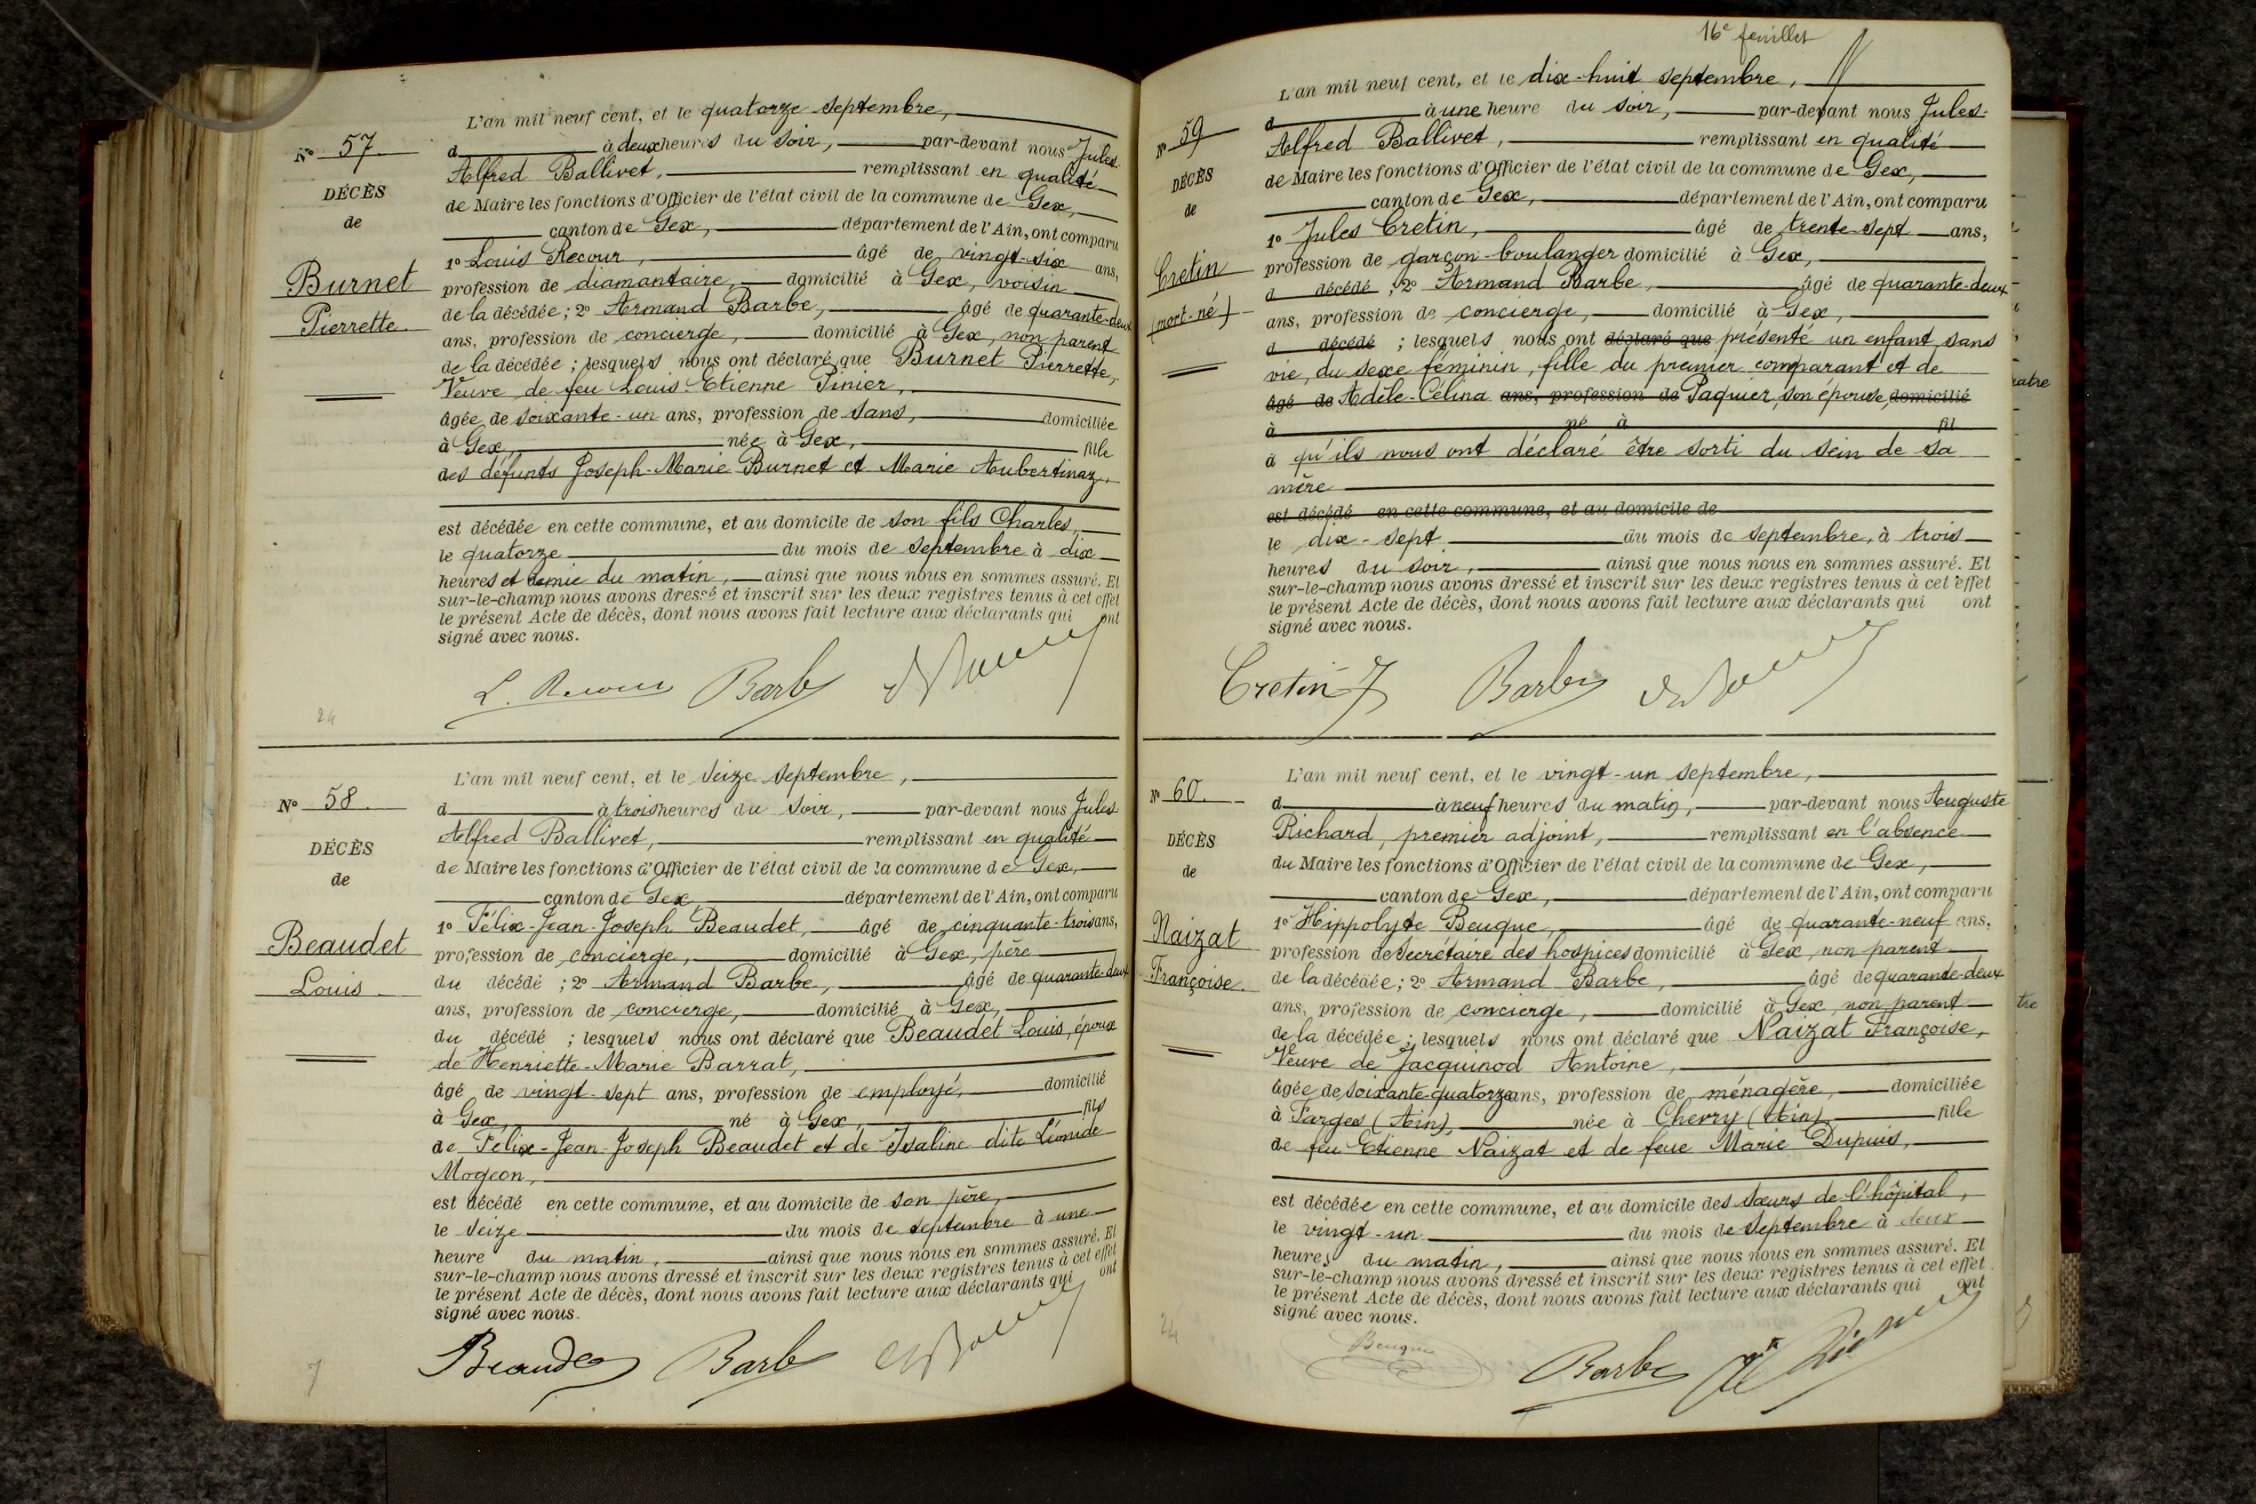 L'an mil neuf cent, et le quatorze septembre,
N° 57
d à deux heures du soir, par-devant nous Jules
Alfred Ballivet, remplissant en qualité
DÉCÈS
de Maire les fonctions d'Officier de l'état civil de la commune de Gex,
de
canton de Gex, département de l'Ain, ont comparu
1° Louis Recour, âgé de vingt-six ans,
Burnet
profession de diamantaire, domicilié à Gex, voisin
Pierrette
de la décédée ; 2° Armand Barbe, âgé de quarante-deux
ans, profession de concierge, domicilié à Gex, non parent
de la décédée ; lesquels nous ont déclaré que Burnet Pierrette,
Veuve de feu Louis Etienne Pinier,
âgée de soixante-un ans, profession de sans, domiciliée
à Gex, née à Gex, fille
des défunts Joseph-Marie Burnet et Marie Aubertinaz,
est décédée en cette commune, et au domicile de son fils Charles,
le quatorze du mois de septembre à dix
heures et demie du matin, ainsi que nous nous en sommes assuré. Et
sur-le-champ nous avons dressé et inscrit sur les deux registres tenus à cet effet
le présent Acte de décès, dont nous avons fait lecture aux déclarants qui ont
signé avec nous.
L. Recour Barbe
24
L'an mil neuf cent, et le seize septembre,
N° 58.
d à trois heures du soir, par-devant nous Jules
Alfred Ballivet, remplissant en qualité
DÉCÈS
de Maire les fonctions d'Officier de l'état civil de la commune de Gex,
de
canton de Gex département de l'Ain, ont comparu
1° Félix-Jean-Joseph Beaudet, âgé de cinquante-trois ans,
Beaudet
profession de concierge, domicilié à Gex, père
Louis.
du décédé ; 2° Armand Barbe, âgé de quarante-deux
ans, profession de concierge, domicilié à Gex,
du décédé ; lesquels nous ont déclaré que Beaudet Louis, époux
de Henriette-Marie Barrat,
âgé de vingt-sept ans, profession de employé, domicilié
à Gex, né à Gex, fils
de Félix-Jean-Joseph Beaudet et de Isaline dite Léonide
Mogeon,
est décédé en cette commune, et au domicile de son père,
le seize du mois de septembre à une
heure du matin, ainsi que nous nous en sommes assuré. Et
sur-le-champ nous avons dressé et inscrit sur les deux registres tenus à cet effet
le présent Acte de décès, dont nous avons fait lecture aux déclarants qui ont
signé avec nous.
Beaudet Barbe
7
16e feuillet
L'an mil neuf cent, et le dix-huit septembre,
N° 59
d à une heure du soir, par-devant nous Jules-
Alfred Ballivet, remplissant en qualité
DÉCÈS
de Maire les fonctions d'Officier de l'état civil de la commune de Gex,
de
canton de Gex, département de l'Ain, ont comparu
1° Jules Cretin, âgé de trente-sept ans,
Cretin
profession de garçon-boulanger domicilié à Gex,
(mort-né)
d décédé ; 2° Armand Barbe, âgé de quarante-deux
ans, profession de concierge, domicilié à Gex,
d décédé ; lesquels nous ont déclaré que présenté un enfant sans
vie, du sexe féminin, fille du premier comparant et de
âgé de Adèle-Célina ans, profession de Paquier, son épouse, domicilié
à né à fil
à qu'ils nous ont déclaré être sorti du sein de sa
mère
est décédé en cette commune, et au domicile de
le dix-sept du mois de septembre, à trois
heures du soir, ainsi que nous nous en sommes assuré. Et
sur-le-champ nous avons dressé et inscrit sur les deux registres tenus à cet effet
le présent Acte de décès, dont nous avons fait lecture aux déclarants qui ont
signé avec nous.
Cretin J Barbe
L'an mil neuf cent, et le vingt-un septembre,
N° 60.
d à neuf heures du matin, par-devant nous Auguste
Richard, premier adjoint, remplissant en l'absence
DÉCÈS
du Maire les fonctions d'Officier de l'état civil de la commune de Gex,
de
canton de Gex, département de l'Ain, ont comparu
1° Hippolyte Beuque, âgé de quarante-neuf ans,
Naizat
profession de Secrétaire des hospices domicilié à Gex, non parent
Françoise.
de la décédée ; 2° Armand Barbe, âgé de quarante-deux
ans, profession de concierge, domicilié à Gex, non parent
de la décédée ; lesquels nous ont déclaré que Naizat Françoise,
Veuve de Jacquinod Antoine,
âgée de soixante-quatorze ans, profession de ménagère, domiciliée
à Farges (Ain), née à Chevry (Ain) fille
de feu Etienne Naizat et de feue Marie Dupuis,
est décédée en cette commune, et au domicile des sœurs de l'hôpital,
le vingt-un du mois de septembre à deux
heures du matin, ainsi que nous nous en sommes assuré. Et
sur-le-champ nous avons dressé et inscrit sur les deux registres tenus à cet effet
le présent Acte de décès, dont nous avons fait lecture aux déclarants qui ont
signé avec nous.
24
Beuque Barbe
tre